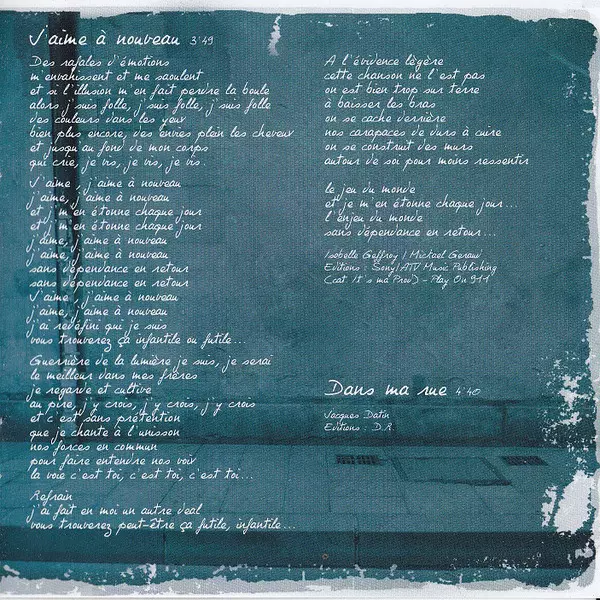 J'aime à nouveau 3'49
Des rafales d'émotions
m'envahissent et me saoulent
et si l'illusion m'en fait perdre la boule
alors j'suis folle, j'suis folle, j'suis folle
des couleurs dans les yeux
bien plus encore, des envies plein les cheveux
et jusqu'au fond de mon corps
qui crie, je vis, je vis, je vis.
J'aime, j'aime à nouveau
j'aime, j'aime à nouveau
et j'm'en étonne chaque jour
et j'm'en étonne chaque jour
j'aime, j'aime à nouveau
j'aime, j'aime à nouveau
sans dépendance en retour
sans dépendance en retour
J'aime, j'aime à nouveau
j'aime, j'aime à nouveau
j'ai redéfini qui je suis
vous trouverez ça infantile ou futile...
Guerrière de la lumière je suis, je serai
le meilleur dans mes frères
je regarde et cultive
au pire, j'y crois, j'y crois, j'y crois
et c'est sans prétention
que je chante à l'unisson
nos forces en commun
pour faire entendre nos voix
la voie c'est toi, c'est toi, c'est toi...
Refrain
j'ai fait en moi un autre deal
vous trouverez peut-être ça futile, infantile...
A l'évidence légère
cette chanson ne l'est pas
on est bien trop sur terre
à baisser les bras
on se cache derrière
nos carapaces de durs à cuire
on se construit des murs
autour de soi pour moins ressentir
le jeu du monde
et je m'en étonne chaque jour...
l'enjeu du monde
sans dépendance en retour...
Isabelle Geffroy / Mickael Geraud
Editions : Sony/ATV Music Publishing
(cat. It's ma Prod) - Play On 911
Dans ma rue 4'40
Jacques Datin
Editions : D.R